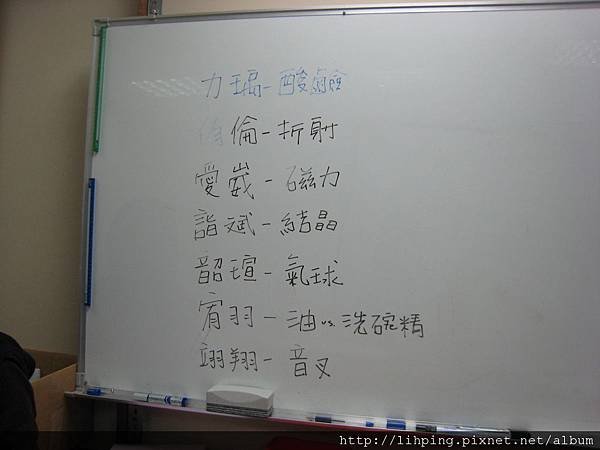 力瑀-酸鹼
倫-折射
愛崴-磁力
詣斌-結晶
韶瑄-氣球
宥羽-油vs.洗碗精
翊翔-音叉
http://lihping.pixnet.net/album